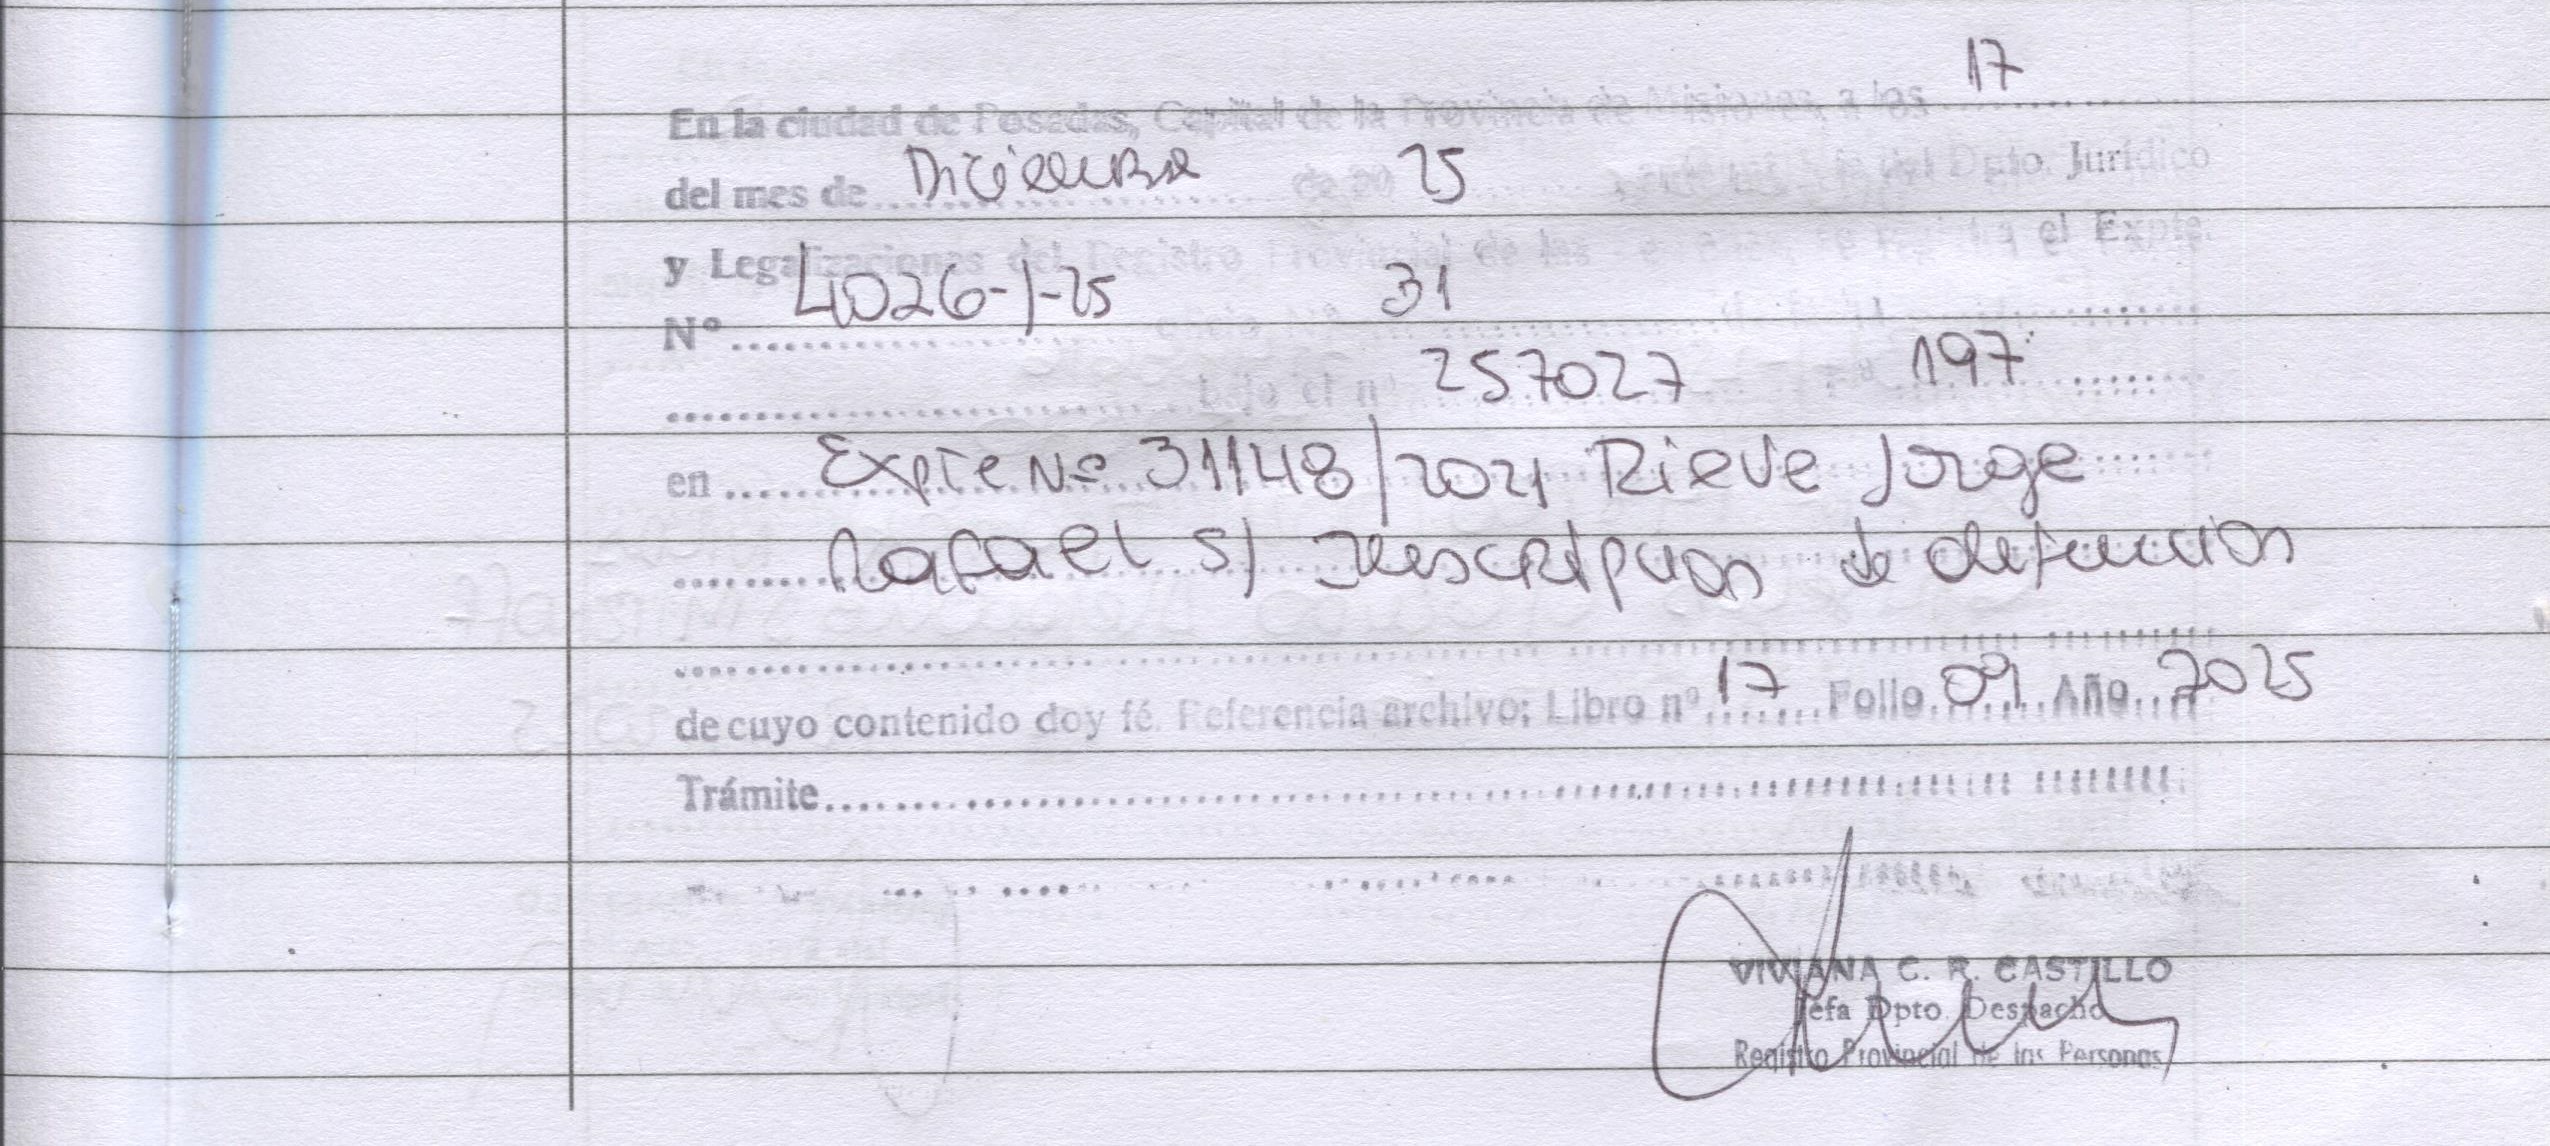 En la ciudad de Posadas, Capital de la Provincia de Misiones, a los 17
del mes de Diciembre de 20 25 Dpto. Jurídico
y Legalizaciones del Registro Provincial de las el Expte.
Nº 4026-J-25 31
bajo el nº 257027 Fº 197
en Expte Nº 31148/2021 Rieve Jorge
Rafael s/ Inscripcion de defuncion
de cuyo contenido doy fé. Referencia archivo: Libro nº 17 Folio 09 Año 2025
Trámite
VIVIANA C. R. CASTILLO
Jefa Dpto. Despacho
Registro Provincial de las Personas